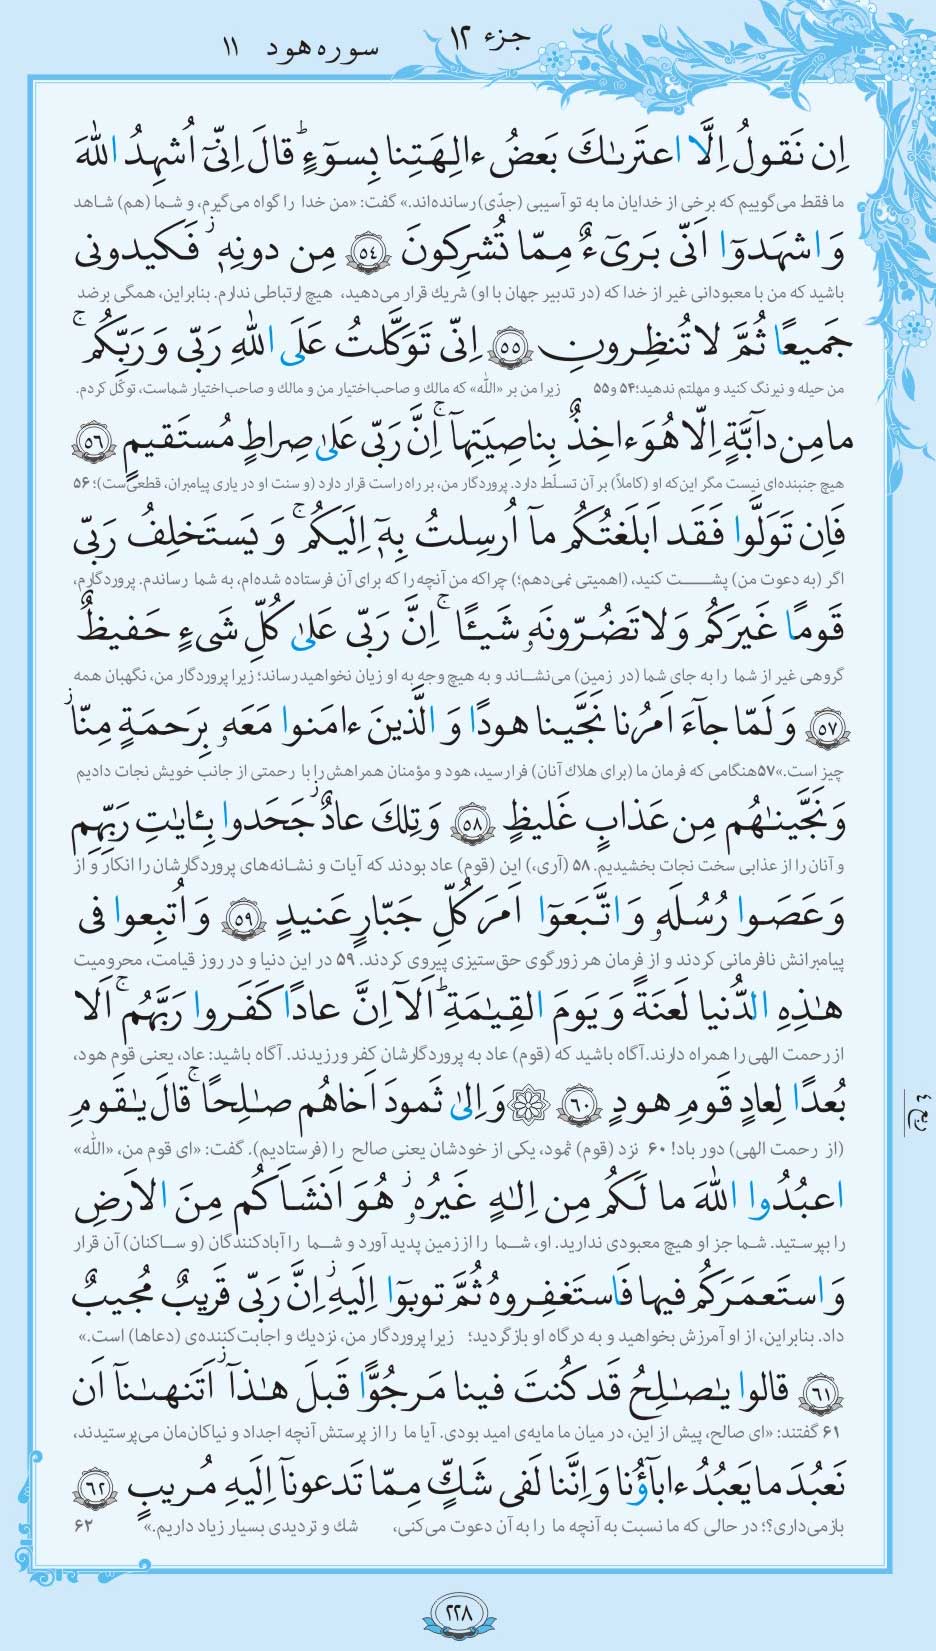 جزء ۱۲
سوره هود ۱۱
اِن نَقولُ اِلَّا اعتَرىٰكَ بَعضُ ءالِهَتِنا بِسوٓءٍ ۗ قالَ اِنّىٓ اُشهِدُ اللّٰهَ
ما فقط می‌گوییم که برخی از خدایان ما به تو آسیبی (جدّی) رسانده‌اند.» گفت: «من خدا را گواه می‌گیرم، و شما (هم) شاهد
وَاشهَدوٓا اَنّى بَرىٓءٌ مِمّا تُشرِكونَ ﴿۵۴﴾ مِن دونِهٖ ۖ فَكيدونى
باشید که من با معبودانی غیر از خدا که (در تدبیر جهان با او) شریك قرار می‌دهید، هیچ ارتباطی ندارم. بنابراین، همگی بر ضد
جَميعًا ثُمَّ لا تُنظِرونِ ﴿۵۵﴾ اِنّى تَوَكَّلتُ عَلَى اللّٰهِ رَبّى وَ رَبِّكُم ۚ
من حیله و نیرنگ کنید و مهلتم ندهید؛ ۵۴ و ۵۵ زیرا من بر «اللّٰه» که مالك و صاحب‌اختیار من و مالك و صاحب‌اختیار شماست، توکّل کردم.
ما مِن دآبَّةٍ اِلّا هُوَ ءاخِذٌ بِناصِيَتِهآ ۚ اِنَّ رَبّى عَلىٰ صِراطٍ مُستَقيمٍ ﴿۵۶﴾
هیچ جنبنده‌ای نیست مگر این‌که او (کاملاً) بر آن تسلّط دارد. پروردگار من، بر راه راست قرار دارد (و سنت او در یاری پیامبران، قطعی‌ست)؛ ۵۶
فَاِن تَوَلَّوا فَقَد اَبلَغتُكُم مآ اُرسِلتُ بِهٖٓ اِلَيكُم ۚ وَ يَستَخلِفُ رَبّى
اگر (به دعوت من) پشت کنید، (اهمیتی نمی‌دهم؛) چراکه من آنچه را که برای آن فرستاده شده‌ام، به شما رساندم. پروردگارم،
قَومًا غَيرَكُم وَلا تَضُرّونَهٗ شَيـًٔا ۚ اِنَّ رَبّى عَلىٰ كُلِّ شَىءٍ حَفيظٌ
گروهی غیر از شما را به جای شما (در زمین) می‌نشاند و به هیچ وجه به او زیان نخواهید رساند؛ زیرا پروردگار من، نگهبان همه
﴿۵۷﴾ وَ لَمّا جآءَ اَمرُنا نَجَّينا هودًا وَ الَّذينَ ءامَنوا مَعَهٗ بِرَحمَةٍ مِنّا ۖ
چیز است.» ۵۷ هنگامی که فرمان ما (برای هلاك آنان) فرا رسید، هود و مؤمنان همراهش را با رحمتی از جانب خویش نجات دادیم
وَ نَجَّينٰهُم مِن عَذابٍ غَليظٍ ﴿۵۸﴾ وَ تِلكَ عادٌ ۖ جَحَدوا بِـٔايٰتِ رَبِّهِم
و آنان را از عذابی سخت نجات بخشیدیم. ۵۸ (آری،) این (قوم) عاد بودند که آیات و نشانه‌های پروردگارشان را انکار و از
وَ عَصَوا رُسُلَهٗ وَاتَّبَعوٓا اَمرَ كُلِّ جَبّارٍ عَنيدٍ ﴿۵۹﴾ وَ اُتبِعوا فى
پیامبرانش نافرمانی کردند و از فرمان هر زورگوی حق‌ستیزی پیروی کردند. ۵۹ در این دنیا و در روز قیامت، محرومیت
هٰذِهِ الدُّنيا لَعنَةً وَ يَومَ القِيٰمَةِ ۗ اَلآ اِنَّ عادًا كَفَروا رَبَّهُم ۚ اَلا
از رحمت الهی را همراه دارند. آگاه باشید که (قوم) عاد به پروردگارشان کفر ورزیدند. آگاه باشید: عاد، یعنی قوم هود،
بُعدًا لِعادٍ قَومِ هودٍ ﴿۶۰﴾ ۞ وَ اِلىٰ ثَمودَ اَخاهُم صٰلِحًا ۚ قالَ يٰقَومِ
ربع ٤
(از رحمت الهی) دور باد! ۶۰ نزد (قوم) ثمود، یکی از خودشان یعنی صالح را (فرستادیم). گفت: «ای قوم من، «اللّٰه»
اعبُدُوا اللّٰهَ ما لَكُم مِن اِلٰهٍ غَيرُهٗ ۖ هُوَ اَنشَاَكُم مِنَ الاَرضِ
را بپرستید. شما جز او هیچ معبودی ندارید. او، شما را از زمین پدید آورد و شما را آبادکنندگان (و ساکنان) آن قرار
وَاستَعمَرَكُم فيها فَاستَغفِروهُ ثُمَّ توبوٓا اِلَيهِ ۖ اِنَّ رَبّى قَريبٌ مُجيبٌ
داد. بنابراین، از او آمرزش بخواهید و به درگاه او بازگردید؛ زیرا پروردگار من، نزدیك و اجابت‌کننده‌ی (دعاها) است.»
﴿۶۱﴾ قالوا يٰصٰلِحُ قَد كُنتَ فينا مَرجُوًّا قَبلَ هٰذآ ۖ اَتَنهىٰنآ اَن
۶۱ گفتند: «ای صالح، پیش از این، در میان ما مایه‌ی امید بودی. آیا ما را از پرستش آنچه اجداد و نیاکان‌مان می‌پرستیدند،
نَعبُدَ ما يَعبُدُ ءابآؤُنا وَ اِنَّنا لَفى شَكٍّ مِمّا تَدعونآ اِلَيهِ مُريبٍ ﴿۶۲﴾
بازمی‌داری؟؛ در حالی که ما نسبت به آنچه ما را به آن دعوت می‌کنی، شك و تردیدی بسیار زیاد داریم.» ۶۲
۲۲۸